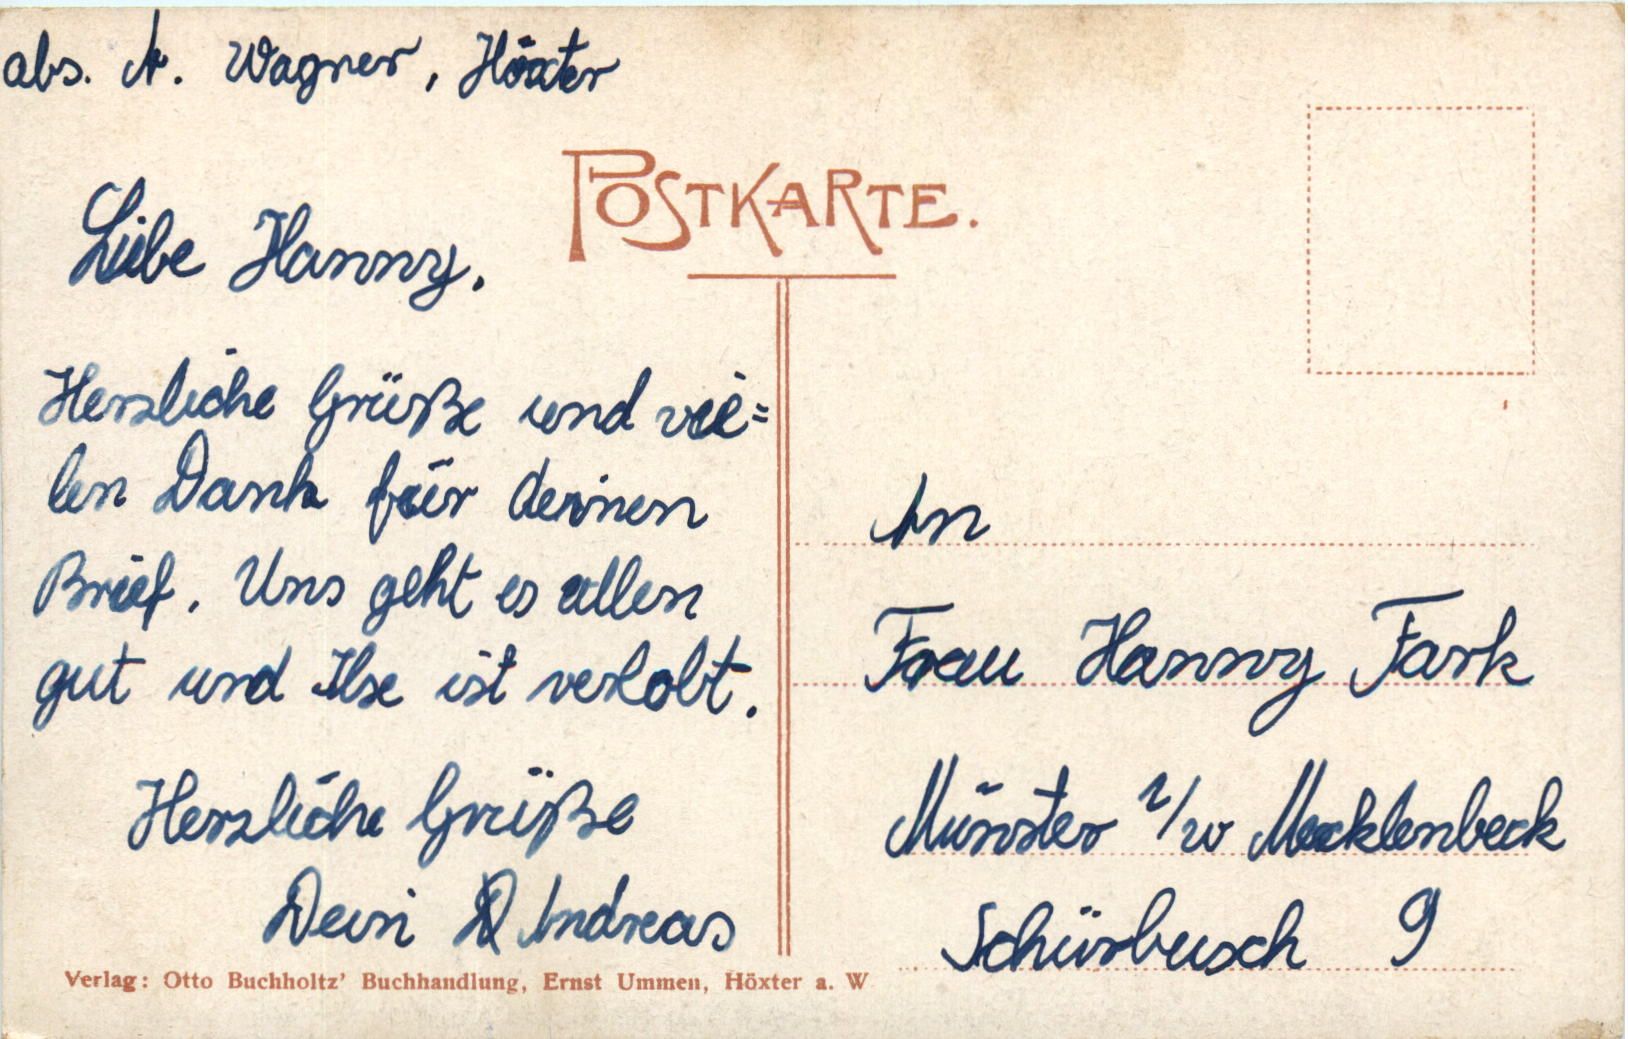 abs. A. Wagner, Höxter
POSTKARTE.
Liebe Hanny,
Herzliche Grüße und vie=
len Dank für deinen
Brief. Uns geht es allen
gut und Ilse ist verlobt.
Herzliche Grüße
Dein Andreas
An
Frau Hanny Fark
Münster i/w Mecklenbeck
Schürbusch 9
Verlag: Otto Buchholtz' Buchhandlung, Ernst Ummen, Höxter a. W